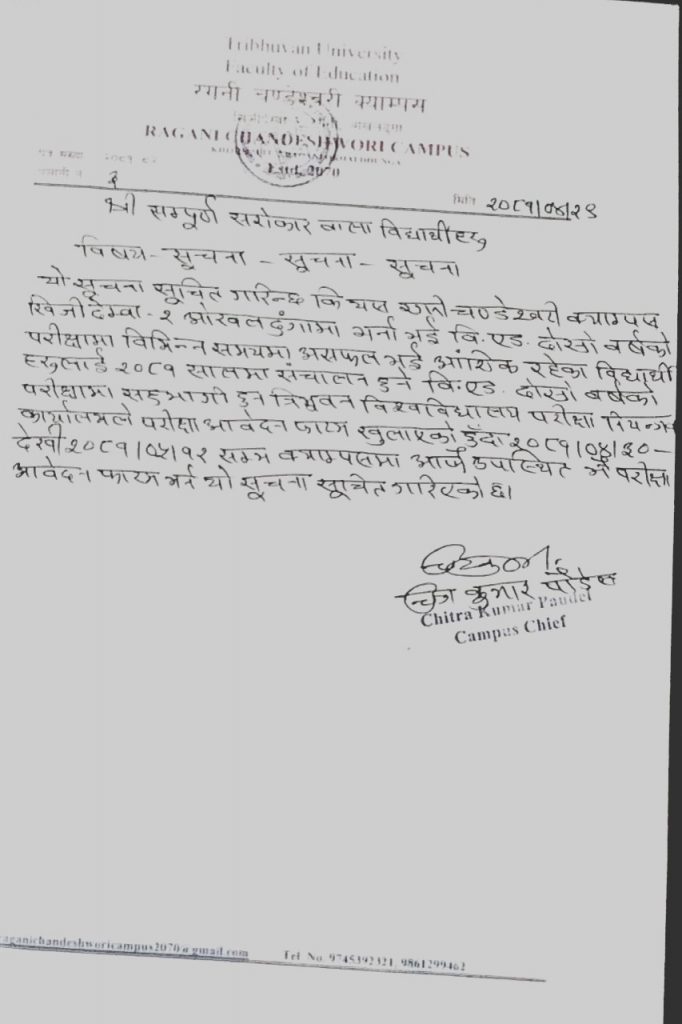 Tribhuvan University
Faculty of Education
रगनी चण्डेश्वरी क्याम्पस
RAGANI CHANDESHWORI CAMPUS
Estd. 2070
३
मिति २०८१/०४/२९
श्री सम्पूर्ण सरोकारवाला विद्यार्थीहरु
विषय - सूचना - सूचना - सूचना
यो सूचना सूचित गरिन्छ कि यस रगनी चण्डेश्वरी क्याम्पस
खिजीदेम्वा - २ ओखलढुंगामा भर्ना भई बि.एड. दोस्रो बर्षको
परीक्षामा विभिन्न समयमा असफल भई आंशिक रहेका विद्यार्थी
हरुलाई २०८१ सालमा संचालन हुने बि.एड. दोस्रो बर्षको
परीक्षामा सहभागी हुन त्रिभुवन विश्वविद्यालय परीक्षा नियन्त्रण
कार्यालयले परीक्षा आवेदन फारम खुलाएको हुँदा २०८१/०४/३०
देखी २०८१/०५/१२ सम्म क्याम्पसमा आई उपस्थित भै परीक्षा
आवेदन फारम भर्न यो सूचना सूचित गरिएको छ।
चित्र कुमार पौडेल
Chitra Kumar Paudel
Campus Chief
raganichandeshworicampus2070@gmail.com Tel No. 9745392321, 9861299462